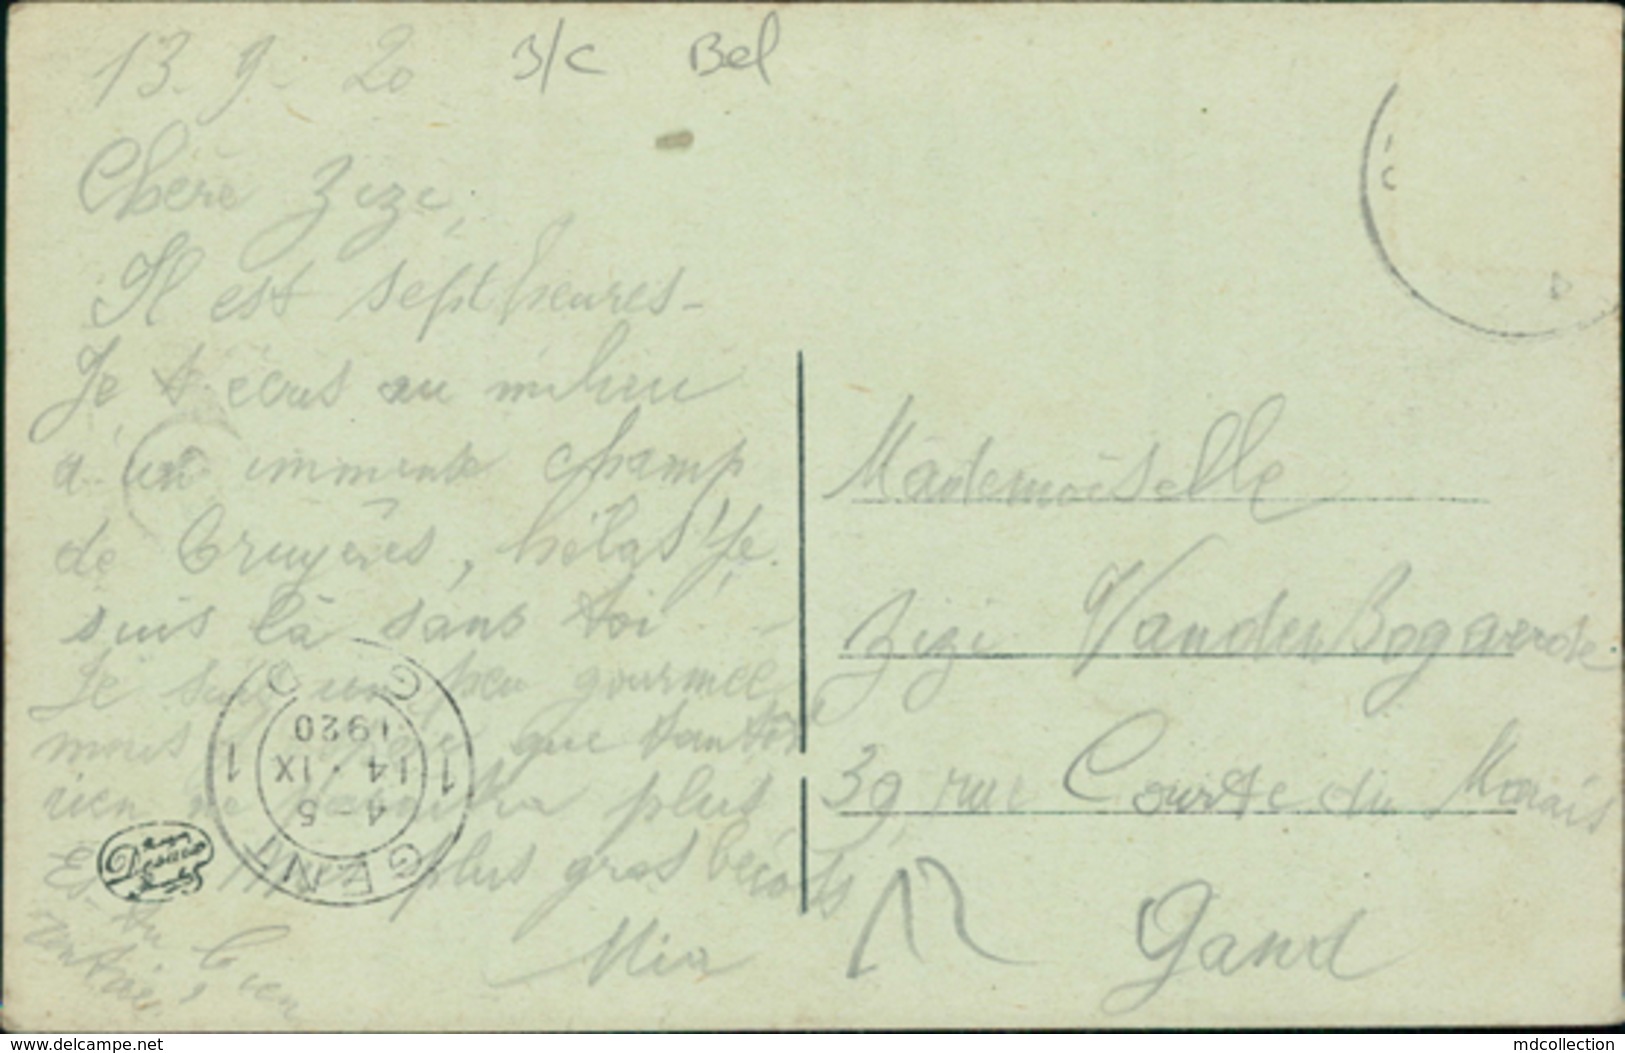 13-9-20 3/C Bel
Chère Zizi,
Il est sept heures-
Je t'écris au milieu
d'un immense champ
de bruyères, hélas! Je
suis là sans toi -
Je suis un peu gourmee
mais que
rien ne plus
plus gros bécots
Mia
Es-tu bien
rentrée,
Mademoiselle
Zizi Vanden Bogaerde
39, rue Courte du Marais
Gand
12
GENT
1 1
4-5
14·IX
1920
G C
Desaix
www.delcampe.net
mdcollection